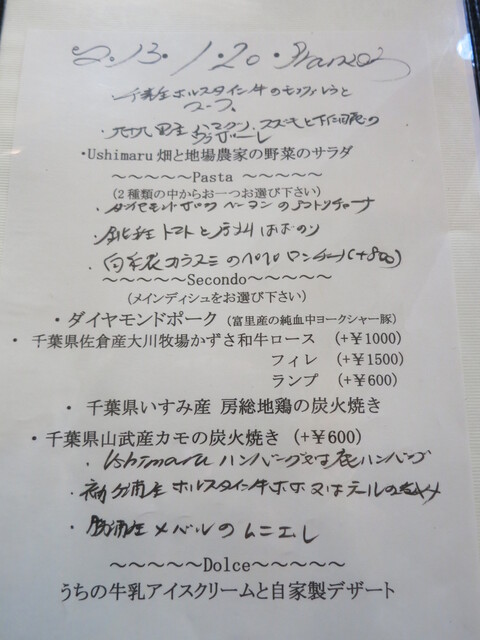 '13・1・20・Pranzo
・千葉産ホルスタイン牛の
スープ
九十九里産ハマグリ、スズキと下仁田葱の
・Ushimaru 畑と地場農家の野菜のサラダ
～～～～～Pasta ～～～～～
(2種類の中からお一つお選び下さい)
・ダイヤモンドポークベーコンのアマトリチャーナ
・銚子産トマトと
・自家製カラスミのペペロンチーノ(+800)
～～～～～Secondo～～～～～
(メインディシュをお選び下さい)
・ダイヤモンドポーク (富里産の純血中ヨークシャー豚)
・ 千葉県佐倉産大川牧場かずさ和牛ロース (+￥1000)
フィレ (+￥1500)
ランプ (+￥600)
・ 千葉県いすみ産 房総地鶏の炭火焼き
・千葉県山武産カモの炭火焼き (+￥600)
・Ushimaruハンバーグ又は鹿ハンバーグ
・袖ヶ浦産ホルスタイン牛ホホ又はテールの煮込み
・勝浦産メバルのムニエル
～～～～～Dolce～～～～～
うちの牛乳アイスクリームと自家製デザート